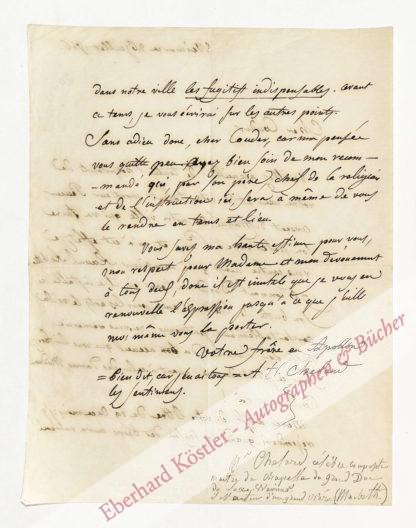 dans notre ville les fugitifs indispensables. avant
ce tems, je vous écrirai sur les autres points.
Sans adieu donc, cher Couder, car ma pensée
vous quitte peu. Ayez bien soin de mon recom-
-mandé qui, par son père, chef de la religion
et de l'instruction ici, sera à même de vous
le rendre en tems et lieu.
Vous savez ma haute estime pour vous,
mon respect pour Madame et mon dévouement
à tous deux donc il est inutile que je vous en
renouvelle l'expression jusqu'à ce que j'aille
moi même vous la porter.
Votre frère en Apollon
= bien dit, car j'en ai tous
les sentimens.
Chelard célèbre
maître de chapelle du grand Duc
de Saxe Weimar
(Macbeth)
Eberhard Köstler - Autographen & Bücher